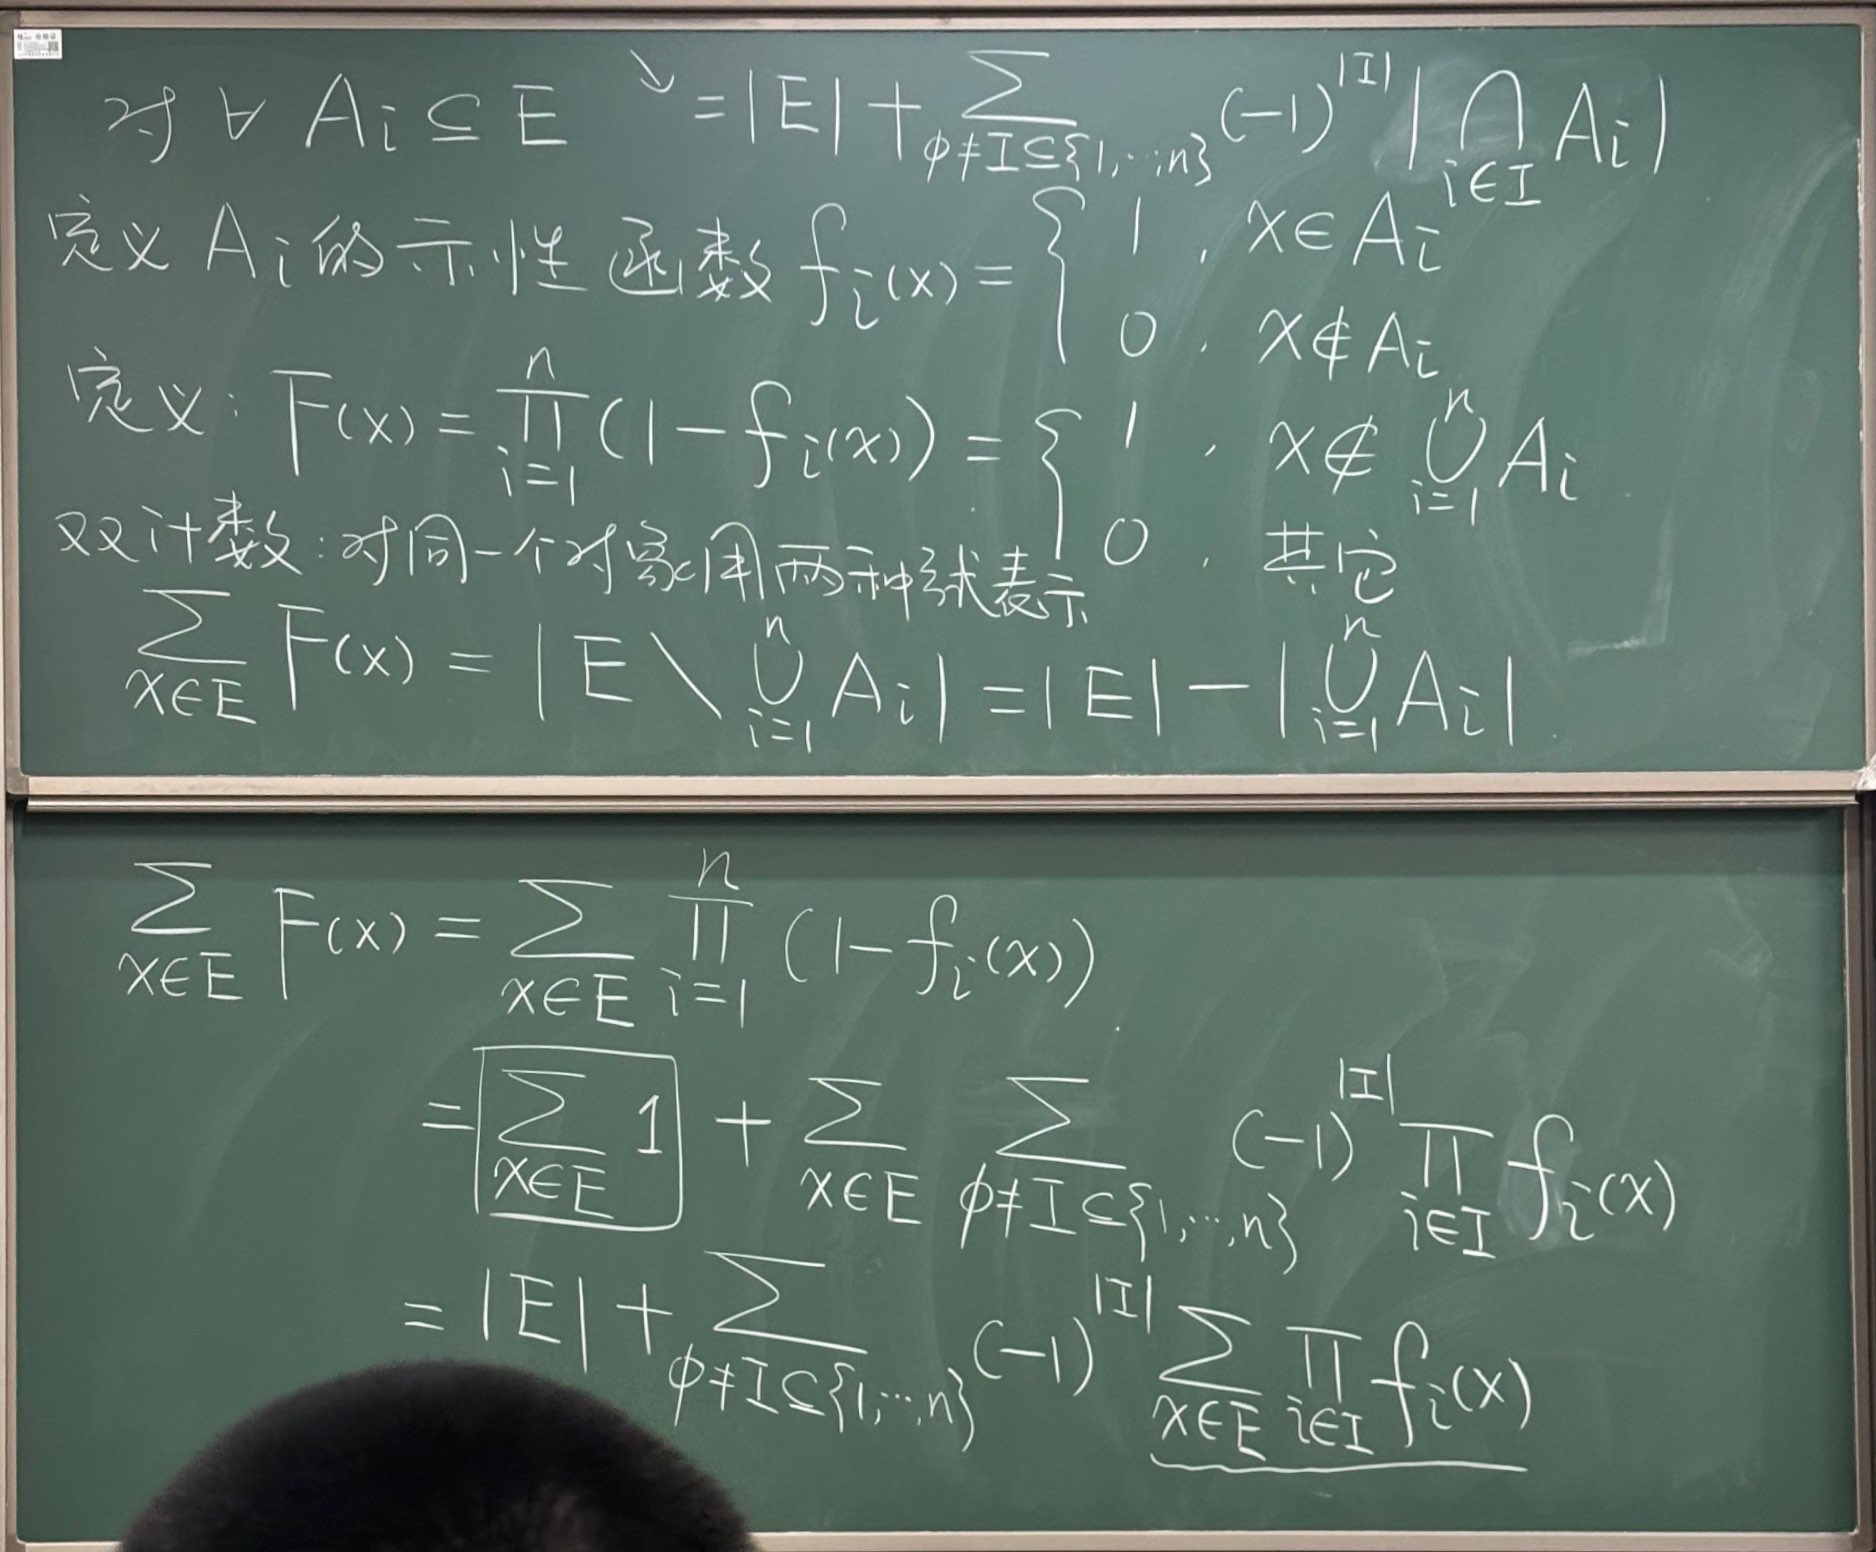 对∀ Aᵢ ⊆ E ↘ = |E| + ∑_{φ≠I⊆{1,…,n}} (-1)^{|I|} |⋂_{i∈I} Aᵢ|
定义 Aᵢ 的示性函数 fᵢ(x) = { 1, x∈Aᵢ
0, x∉Aᵢ
定义: F(x) = ∏_{i=1}^{n} (1-fᵢ(x)) = { 1, x∉ ⋃_{i=1}^{n} Aᵢ
0, 其它
双计数: 对同一个对象用两种式表示
∑_{x∈E} F(x) = |E \ ⋃_{i=1}^{n} Aᵢ| = |E| - |⋃_{i=1}^{n} Aᵢ|
∑_{x∈E} F(x) = ∑_{x∈E} ∏_{i=1}^{n} (1-fᵢ(x))
= ∑_{x∈E} 1 + ∑_{x∈E} ∑_{φ≠I⊆{1,…,n}} (-1)^{|I|} ∏_{i∈I} fᵢ(x)
= |E| + ∑_{φ≠I⊆{1,…,n}} (-1)^{|I|} ∑_{x∈E} ∏_{i∈I} fᵢ(x)